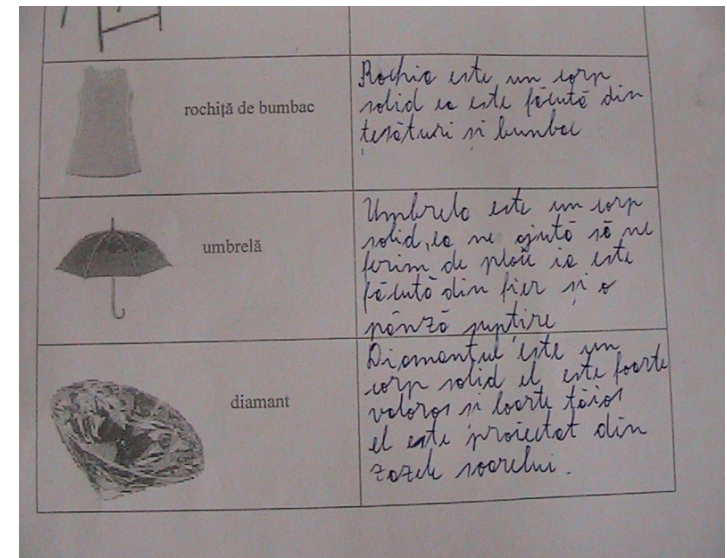 rochiță de bumbac
Rochia este un corp
solid ea este făcută din
țesături și bumbac
umbrelă
Umbrela este un corp
solid, ea ne ajută să ne
ferim de ploii ia este
făcută din fier și o
pânză supțire
diamant
Diamantul este un
corp solid el este foarte
valoros și foarte tăios
el este proiectat din
zazele soarelui.